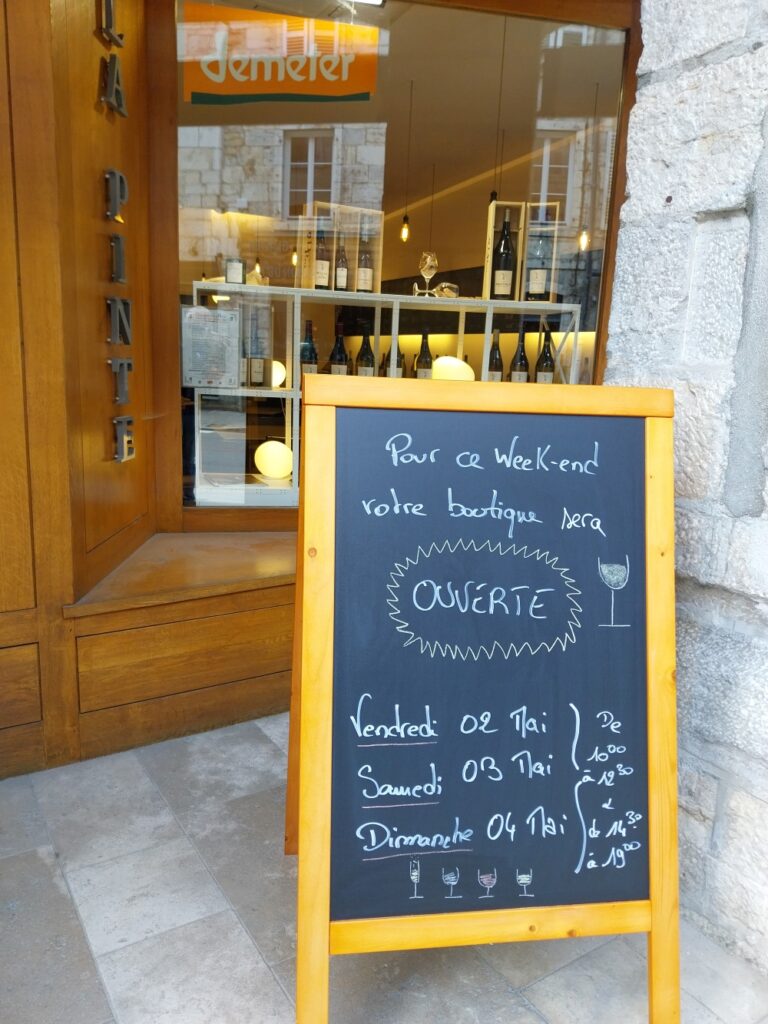 LA PINTE
demeter
Pour ce week-end
votre boutique sera
OUVERTE
Vendredi 02 Mai
Samedi 03 Mai
Dimanche 04 Mai
De
10°°
à 12³⁰
&
de 14³⁰
à 19°°